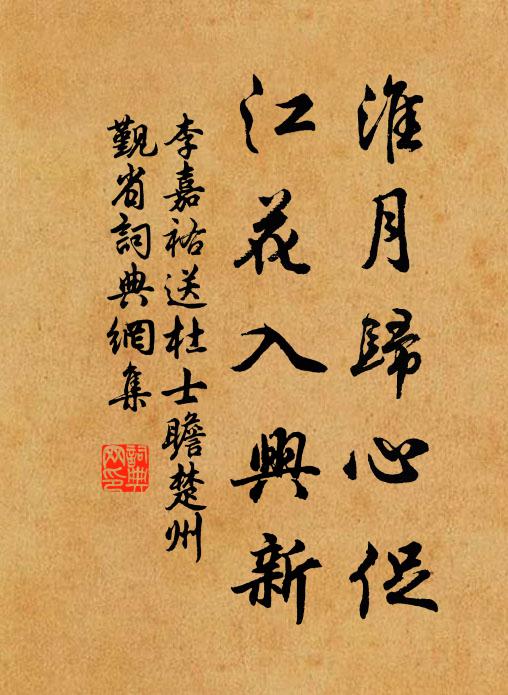 淮月歸心促
江花入興新
李嘉祐送杜士瞻楚州
覲省詞典網集
詞典
网印